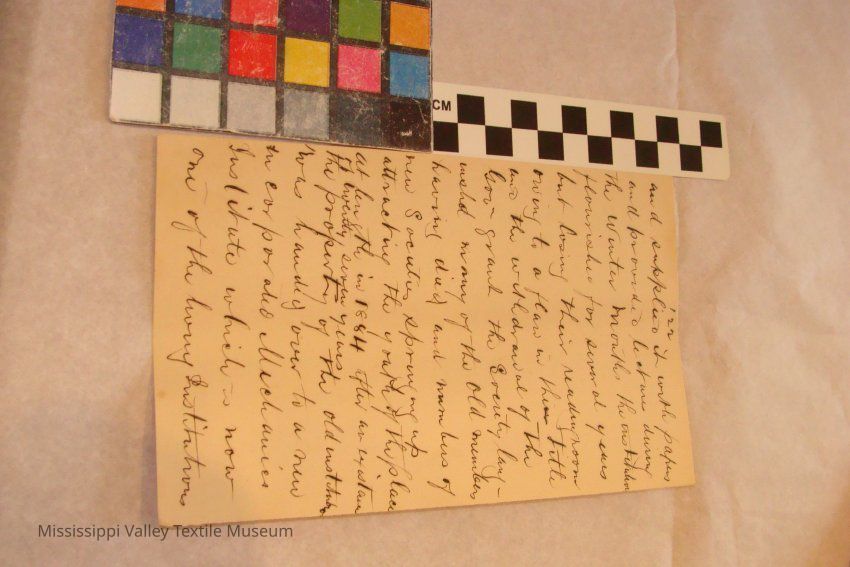 '22
and supplied it with papers
and provided lecture during
the Winter months the institution
flourished for several years
but losing their readingroom
owing to a flaw in their title
and the withdrawal of the
Gov grant the Society lang-
uished many of the old members
having died and numbers of
new Societies springing up
attracting the youth of the place
at length in 1884 after an existan
of twenty seven years
the property of the old institute
was handed over to a new
incorporated Mechanics
Institute which is now
one of the living Institutions
CM
Mississippi Valley Textile Museum